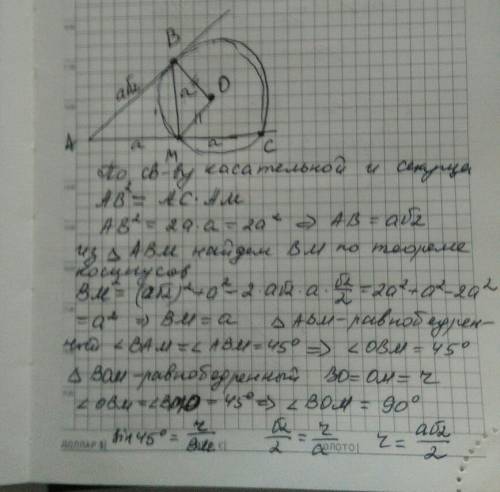 B
a√2
a
O
A
a
M
a
C
По св-ву касательной и секущей
AB² = AC·AM
AB² = 2a·a = 2a² ⇒ AB = a√2
из △ ABM найдем BM по теореме
косинусов
BM² = (a√2)² + a² - 2·a√2·a·√2/2 = 2a² + a² - 2a²
= a² ⇒ BM = a △ ABM - равнобедрен-
ный ∠BAM = ∠ABM = 45° ⇒ ∠OBM = 45°
△ BOM - равнобедренный BO = OM = r
∠OBM = ∠BMO = 45° ⇒ ∠BOM = 90°
sin 45° = r/BM √2/2 = r/a r = a√2/2